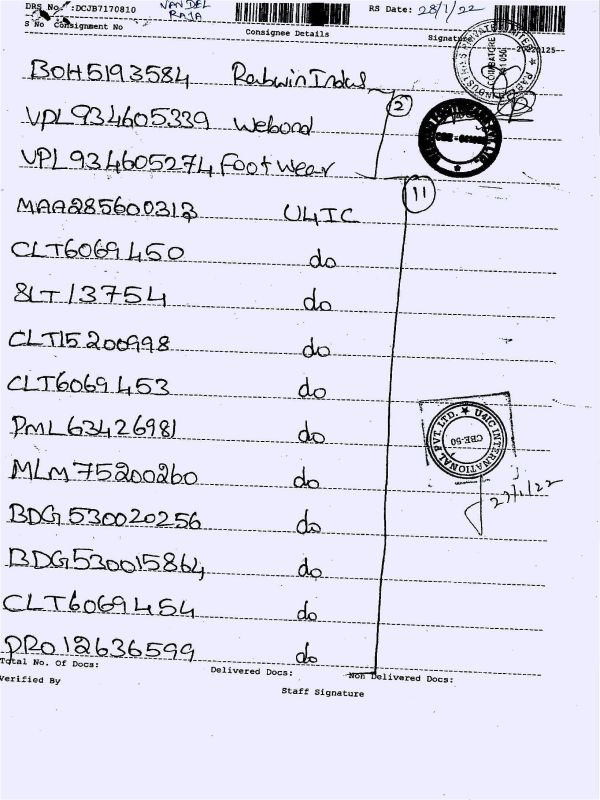 DRS No. :DCJB7170810 RS Date: 28/1/22
S No Consignment No Consignee Details Signature
BOH5193584 Rabwin Indus
2
VPL934605339 Webond
VPL934605274 Footwear
11
MAA285600313 U4IC
CLT6069450 do
SLT13754 do
CLT15200998 do
CLT6069453 do
PML63426981 do
U4IC INTERNATIONAL PVT LTD. ★
CBE-50
MLM75200260 do
27/1/22
BDG530020256 do
BDG530015864 do
CLT6069454 do
PRO12636599 do
Total No. Of Docs: Delivered Docs: Non Delivered Docs:
Verified By Staff Signature